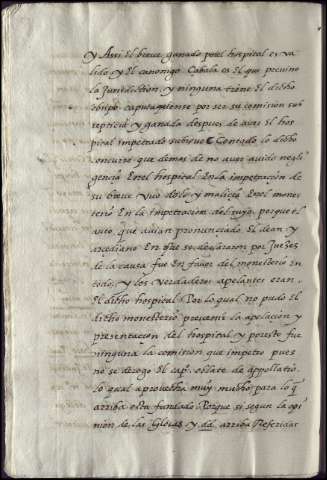 y Assi El breve ganado por el hospital es va
lido y El canonigo Cabala es El que previno
la Jurisdiction y ninguna tiene El dicho
obispo caputaquense por ser su comision sub
repticia y ganada despues de aver El hos
pital impetrado su breve Conteste lo dicho
concurre que demas de no aver avido negli
gencia En el hospital En la impetracion de
su breve Vuo dolo y malicia En el mones
terio En la impetracion del suyo porque El
auto que avian pronunciado El dean y
arcediano En que se declararon por Juezes
de la causa fue En favor del monesterio En
todo y los verdaderos apelantes eran
El dicho hospital Por lo qual no pudo El
dicho monesterio prevenir la apelacion y
presentacion del hospital y por esto fue
ninguna la comision que impetro pues
no se derogo El cap. oblate de appellatio.
lo qual aprovecha muy mucho para lo q
arriba esta fundado Porque si segun la opi
nion de las Glosas y dd. arriba Referidas